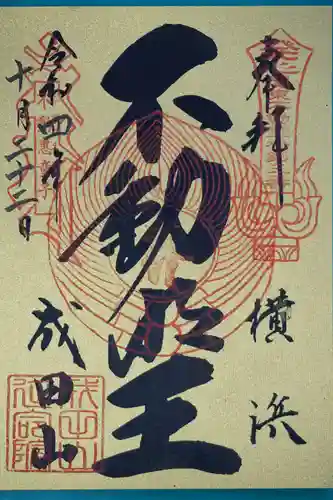 奉拝
横浜
不動明王
令和四年
十月二十二日
成田山